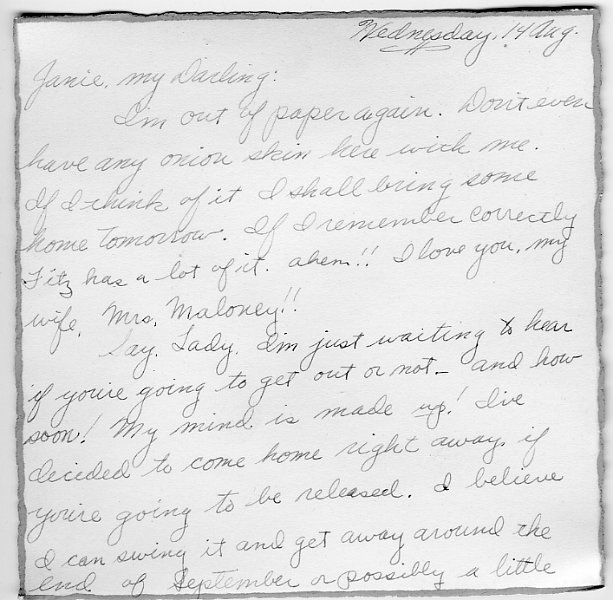 Wednesday, 14 Aug.
Janie, my Darling:
I'm out of paper again. Don't even
have any onion skin here with me.
If I think of it I shall bring some
home tomorrow. If I remember correctly
Fitz has a lot of it. ahem!! I love you, my
wife, Mrs. Maloney!!
Say, Lady, I'm just waiting to hear
if you're going to get out or not - and how
soon! My mind is made up! I've
decided to come home right away if
you're going to be released. I believe
I can swing it and get away around the
end of September or possibly a little